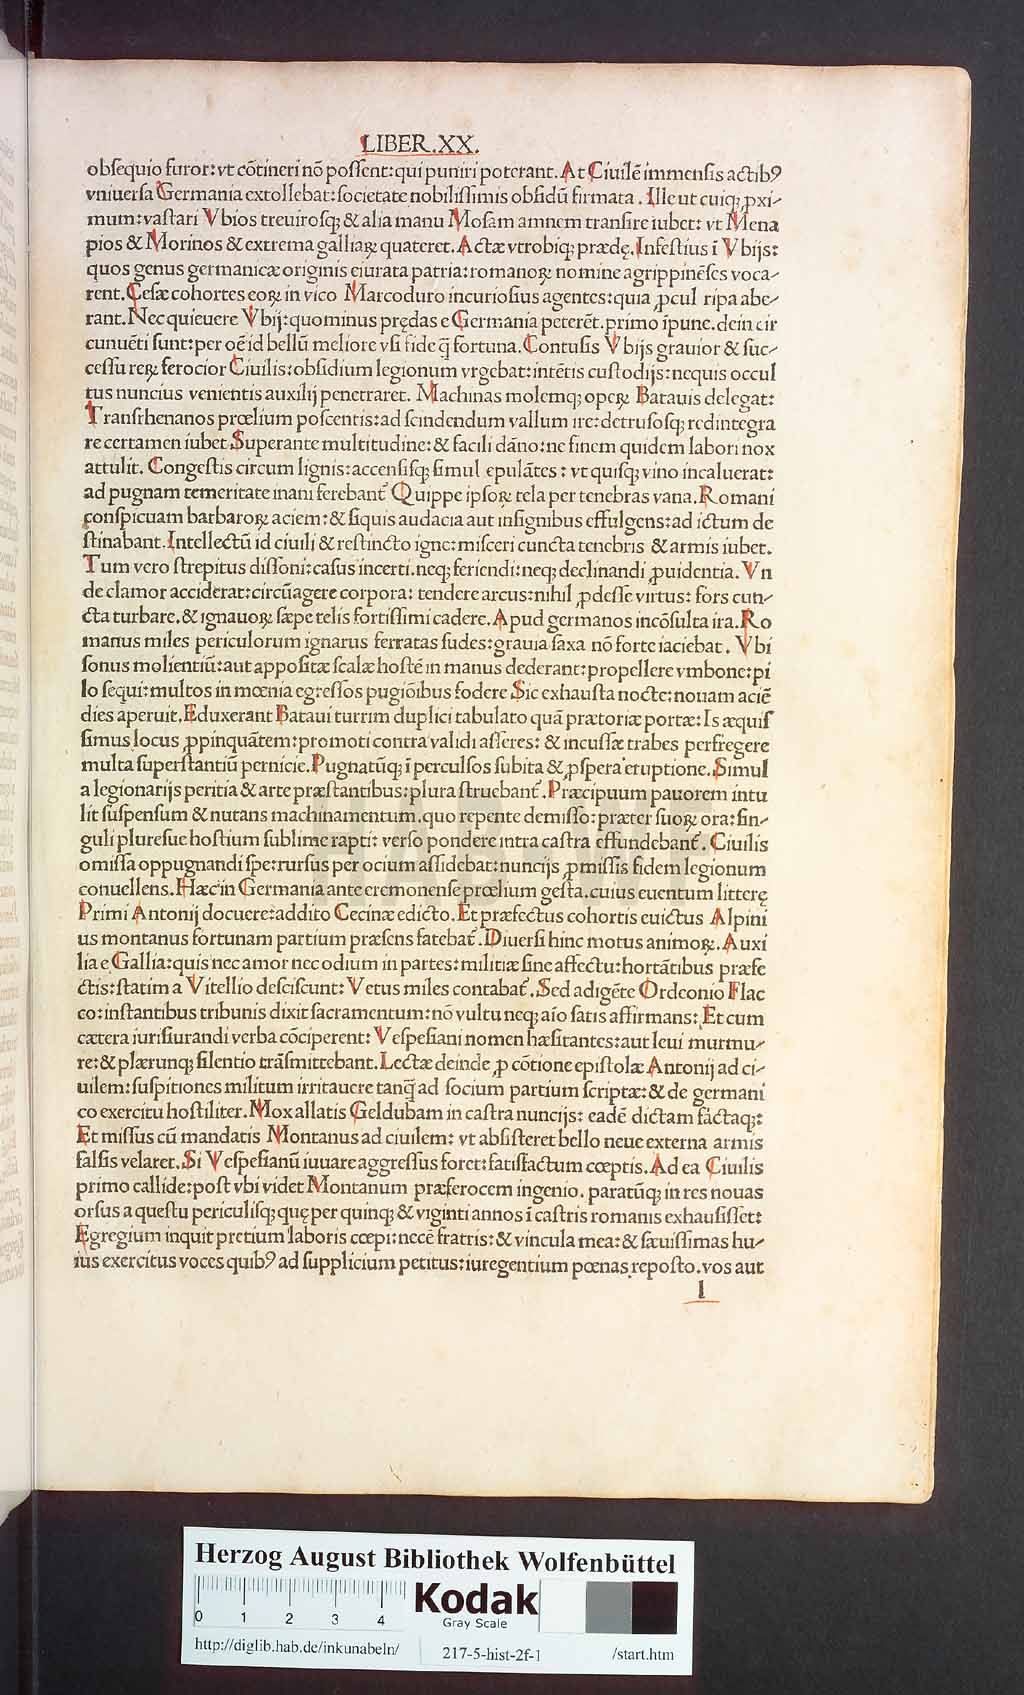 LIBER.XX.
obsequio furor: vt cōtineri nō possent: qui puniri poterant. At Ciuilē immensis actibꝰ
vniuersa Germania extollebat: societate nobilissimis obsidū firmata. Ille ut cuiqꝫ ꝓxi-
mum: vastari Vbios treuirosqꝫ & alia manu Mosam amnem transire iubet: vt Mena
pios & Morinos & extrema galliaꝝ quateret. Actæ vtrobiqꝫ prædę. Infestius ī Vbijs:
quos genus germanicæ originis eiurata patria: romanoꝝ nomine agrippinēses voca-
rent. Cesæ cohortes eoꝝ in vico Marcoduro incuriosius agentes: quia ꝓcul ripa abe-
rant. Nec quieuere Vbij: quo minus prędas e Germania peterēt. primo īpune. dein cir
cunuēti sunt: per oē id bellū meliore vsi fide q̄ fortuna. Contusis Vbijs grauior & suc-
cessu reꝝ ferocior Ciuilis: obsidium legionum vrgebat: intētis custodijs: nequis occul
tus nuncius venientis auxilij penetraret. Machinas molemqꝫ opeꝝ Batauis delegat:
Transrhenanos prœlium poscentis: ad scindendum vallum ire: detrusosqꝫ redintegra
re certamen iubet. Superante multitudine: & facili dāno: ne finem quidem labori nox
attulit. Congestis circum lignis: accensisqꝫ simul epulātes: vt quisqꝫ vino incaluerat:
ad pugnam temeritate inani ferebant̄ Quippe ipsoꝝ tela per tenebras vana. Romani
conspicuam barbaroꝝ aciem: & siquis audacia aut insignibus effulgens: ad ictum de
stinabant. Intellectū id ciuili & restincto igne: misceri cuncta tenebris & armis iubet.
Tum vero strepitus dissoni: casus incerti. neqꝫ feriendi: neqꝫ declinandi ꝓuidentia. Vn
de clamor acciderat: circūagere corpora: tendere arcus: nihil ꝓdesse virtus: fors cun-
cta turbare. & ignauoꝝ sæpe telis fortissimi cadere. Apud germanos incōsulta ira. Ro
manus miles periculorum ignarus ferratas sudes: grauia saxa nō forte iaciebat. Vbi
sonus molientiū: aut appositæ scalæ hostē in manus dederant: propellere vmbone: pi
lo sequi: multos in mœnia egressos pugiōibus fodere Sic exhausta nocte: nouam aciē
dies aperuit. Eduxerant Bataui turrim duplici tabulato quā prætoriæ portæ: Is æquis
simus locus ꝓpinquātem: promoti contra validi asseres: & incussæ trabes perfregere
multa superstantiū pernicie. Pugnatūqꝫ ī perculsos subita & ꝓspera eruptione. Simul
a legionarijs peritia & arte præstantibus: plura struebant̄. Præcipuum pauorem intu
lit suspensum & nutans machinamentum. quo repente demisso: præter suoꝝ ora: sin-
guli pluresue hostium sublime rapti: verso pondere intra castra effundebant̄. Ciuilis
omissa oppugnandi spe: rursus per ocium assidebat: nuncijs ꝓmissis fidem legionum
conuellens. Hæc in Germania ante cremonense prœlium gesta. cuius euentum litterę
Primi Antonij docuere: addito Cecinæ edicto. Et præfectus cohortis euictus Alpini
us montanus fortunam partium præsens fatebat̄. Diuersi hinc motus animoꝝ. Auxi
lia e Gallia: quis nec amor nec odium in partes: militiæ sine affectu: hortātibus præfe
ctis: statim a Vitellio desciscunt: Vetus miles contabat̄. Sed adigēte Ordeonio Flac
co: instantibus tribunis dixit sacramentum: nō vultu neqꝫ aīo satis affirmans: Et cum
cætera iurisiurandi verba cōciperent: Vespesiani nomen hæsitantes: aut leui murmu-
re: & plærunqꝫ silentio trāsmittebant. Lectæ deinde ꝓ cōtione epistolæ Antonij ad ci-
uilem: suspitiones militum irritauere tanq̄ ad socium partium scriptæ: & de germani
co exercitu hostiliter. Mox allatis Geldubam in castra nuncijs: eadē dictam factaqꝫ:
Et missus cū mandatis Montanus ad ciuilem: vt absisteret bello neue externa armis
falsis velaret. Si Vespesianū iuuare aggressus foret: fatisfactum cœptis. Ad ea Ciuilis
primo callide: post vbi videt Montanum præferocem ingenio. paratūqꝫ in res nouas
orsus a questu periculisqꝫ quę per quinqꝫ & viginti annos ī castris romanis exhausisset:
Egregium inquit pretium laboris cœpi: necē fratris: & vincula mea: & sæuissimas hu-
ius exercitus voces quibꝰ ad supplicium petitus: iure gentium pœnas reposto. vos aut
l
HAB-WF
Herzog August Bibliothek Wolfenbüttel
0 1 2 3 4
Kodak
Gray Scale
http://diglib.hab.de/inkunabeln/ 217-5-hist-2f-1 /start.htm